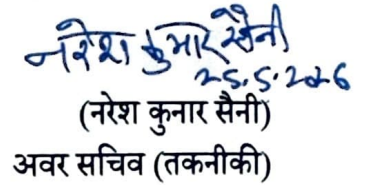 नरेश कुमार सैनी
25.5.2026
(नरेश कुनार सैनी)
अवर सचिव (तकनीकी)